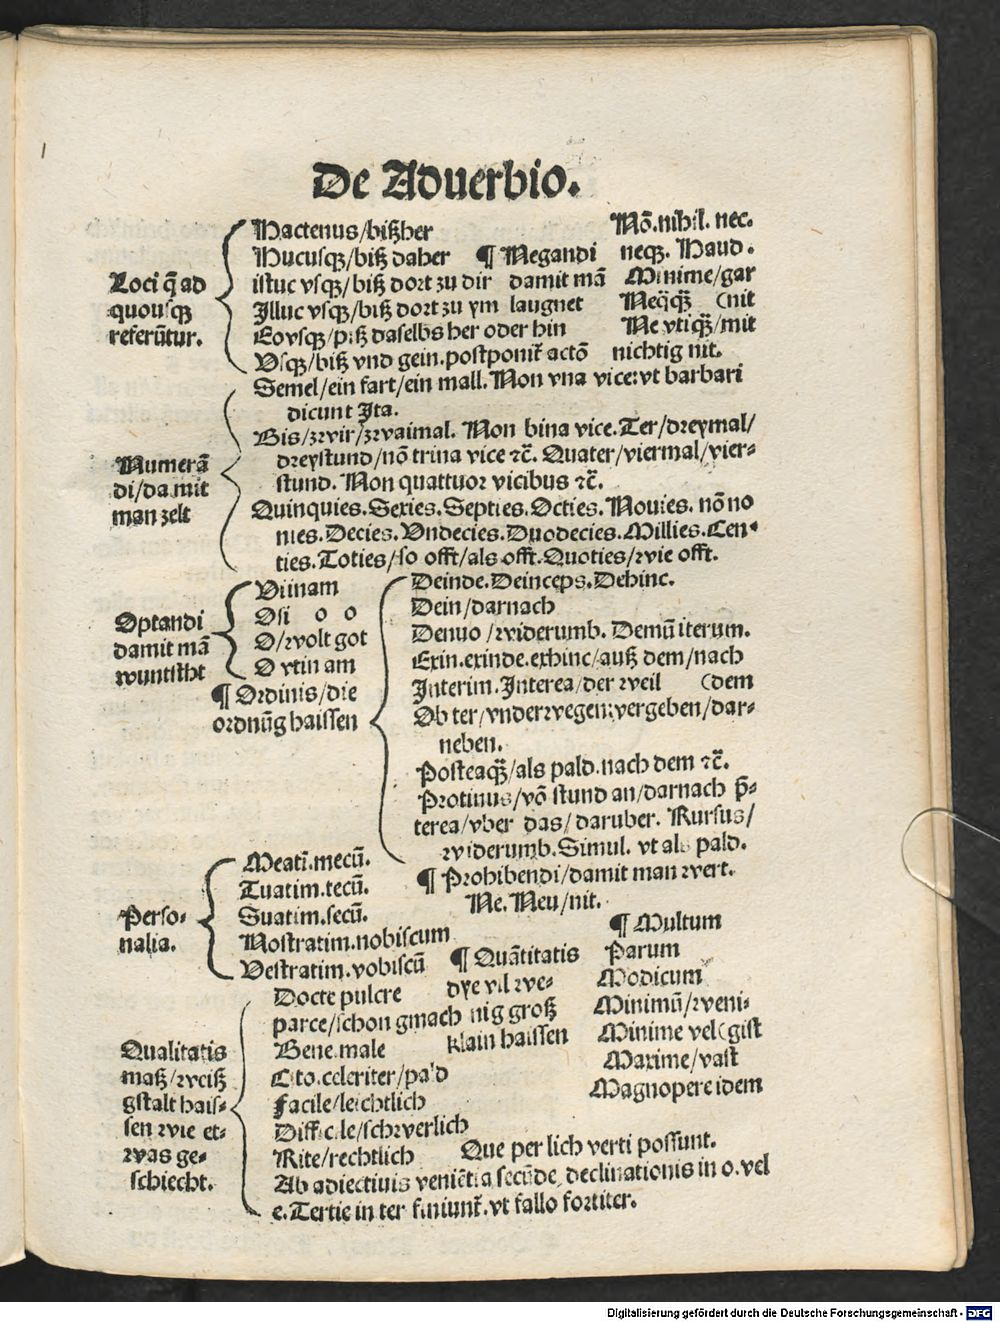 De Aduerbio.
Loci q̄ ad
quousqȝ
referūtur.
Hactenus/bißher
Hucusqȝ/biß daher
istuc vsqȝ/biß dort zu dir
Illuc vsqȝ/biß dort zu ym
Eovsqȝ/piß daselbs her oder hin
Vsqȝ/biß vnd gein. postponit̄ actō
¶ Negandi
damit mā
laugnet
Nō. nihil. nec.
neqȝ. Haud.
Minime/gar
Neq̄qȝ̄ (nit
Ne vtiqȝ̄/mit
nichtig nit.
Numerā
di/da mit
man zelt
Semel/ein fart/ein mall. Non vna vice: vt barbari
dicunt Ita.
Bis/zwir/zwaimal. Non bina vice. Ter/dreymal/
dreystund/nō trina vice ⁊c̄. Quater/viermal/vier⸗
stund. Non quattuor vicibus ⁊c̄.
Quinquies. Sexies. Septies. Octies. Nouies. nō no
nies. Decies. Vndecies. Duodecies. Millies. Cen⸗
ties. Toties/so offt/als offt. Quoties/wie offt.
Optandi
damit mā
wuntscht
Vtinam
Osi o o
O/wolt got
O vtin am
¶ Ordinis/die
ordnūg haissen
Deinde. Deinceps. Dehinc.
Dein/darnach
Denuo/widerumb. Demū iterum.
Exin. exinde. exhinc/auß dem/nach
Interim. Interea/der weil (dem
Ob ter/vnderwegen: vergeben/dar⸗
neben.
Posteaqȝ̄/als pald. nach dem ⁊c̄.
Protinus/vō stund an/darnach p̄⸗
terea/vber das/daruber. Rursus/
widerumb. Simul. vt als pald.
¶ Prohibendi/damit man wert.
Ne. Neu/nit.
Perso⸗
nalia.
Meati. mecū.
Tuatim. tecū.
Suatim. secū.
Nostratim. nobiscum
Vestratim. vobiscū
¶ Quātitatis
dye vil we⸗
nig groß
klain haissen
¶ Multum
Parum
Modicum
Minimū/weni⸗
Minime vel (gist
Maxime/vast
Magnopere idem
Qualitatis
maß/weiß
gstalt hais⸗
sen wie et⸗
was ge⸗
schiecht.
Docte pulcre
parce/schon gmach
Bene. male
Cito. celeriter/pald
Facile/leichtlich
Difficile/schwerlich
Rite/rechtlich
Que per lich verti possunt.
Ab adiectiuis veniētia secūde declinationis in o. vel
e. Tertie in ter finiunt̄. vt fallo fortiter.
Digitalisierung gefördert durch die Deutsche Forschungsgemeinschaft - DFG